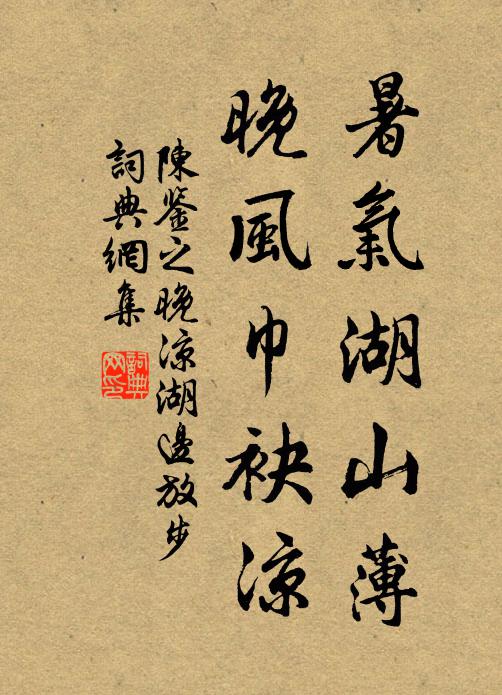 暑氣湖山薄
晚風巾袂涼
陳鑒之晚涼湖邊放步
詞典網集
詞典网印